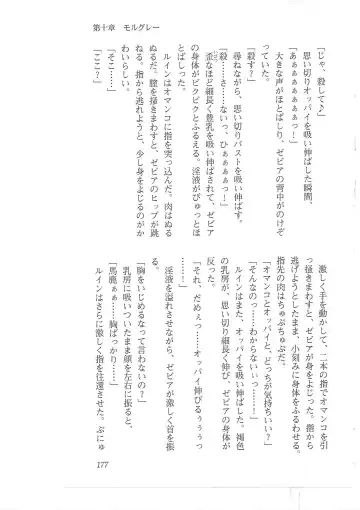 第十章 モルグレー
「じゃ、殺して♪」
思い切りオッパイを吸い伸ばした瞬間、
「あぁぁぁぁぁぁぁっ！」
大きな声がほとばしり、ゼピアの背中がのけぞ
っていた。
「殺す？」
尋ねながら、思い切りバストを吸い伸ばす。
「殺……さ……ないっ、ひぁぁぁぁっ！」
歪なほど細長く豊乳を吸い伸ばされて、ゼピア
の身体がビクビクとふるえる。淫液がぴゅっとほ
とばしった。
ルインはオマンコに指を突っ込んだ。肉はぬる
ぬるだ。膣を掻きまわすと、ゼピアのヒップが跳
ねる。指から逃れようと、少し身をよじるのがか
わいらしい。
「そこ……」
「ここ？」
激しく手を動かして、二本の指でオマンコを引
っ掻きまわすと、ゼピアが身をよじった。指から
逃げようとしたまま、小刻みに身体をふるわせる。
指先の肉はちゅぷちゅぷだ。
「オマンコとオッパイと、どっちが気持ちいい？」
「そんなのっ……わからないっっ……！」
ルインはまた、オッパイを吸い伸ばした。褐色
の乳房が、思い切り細長く伸び、ゼピアの身体が
反った。
「それ、だめぇっ……オッパイ伸びるぅぅぅっ
……！」
淫液を溢れさせながら、ゼピアが激しく首を振
る。
「胸をいじめるなって言わないの？」
乳房に吸いついたまま顔を左右に振ると、
「馬鹿ぁぁ……胸ばっかり……」
ルインはさらに激しく指を往還させた。ぷにゅ
177